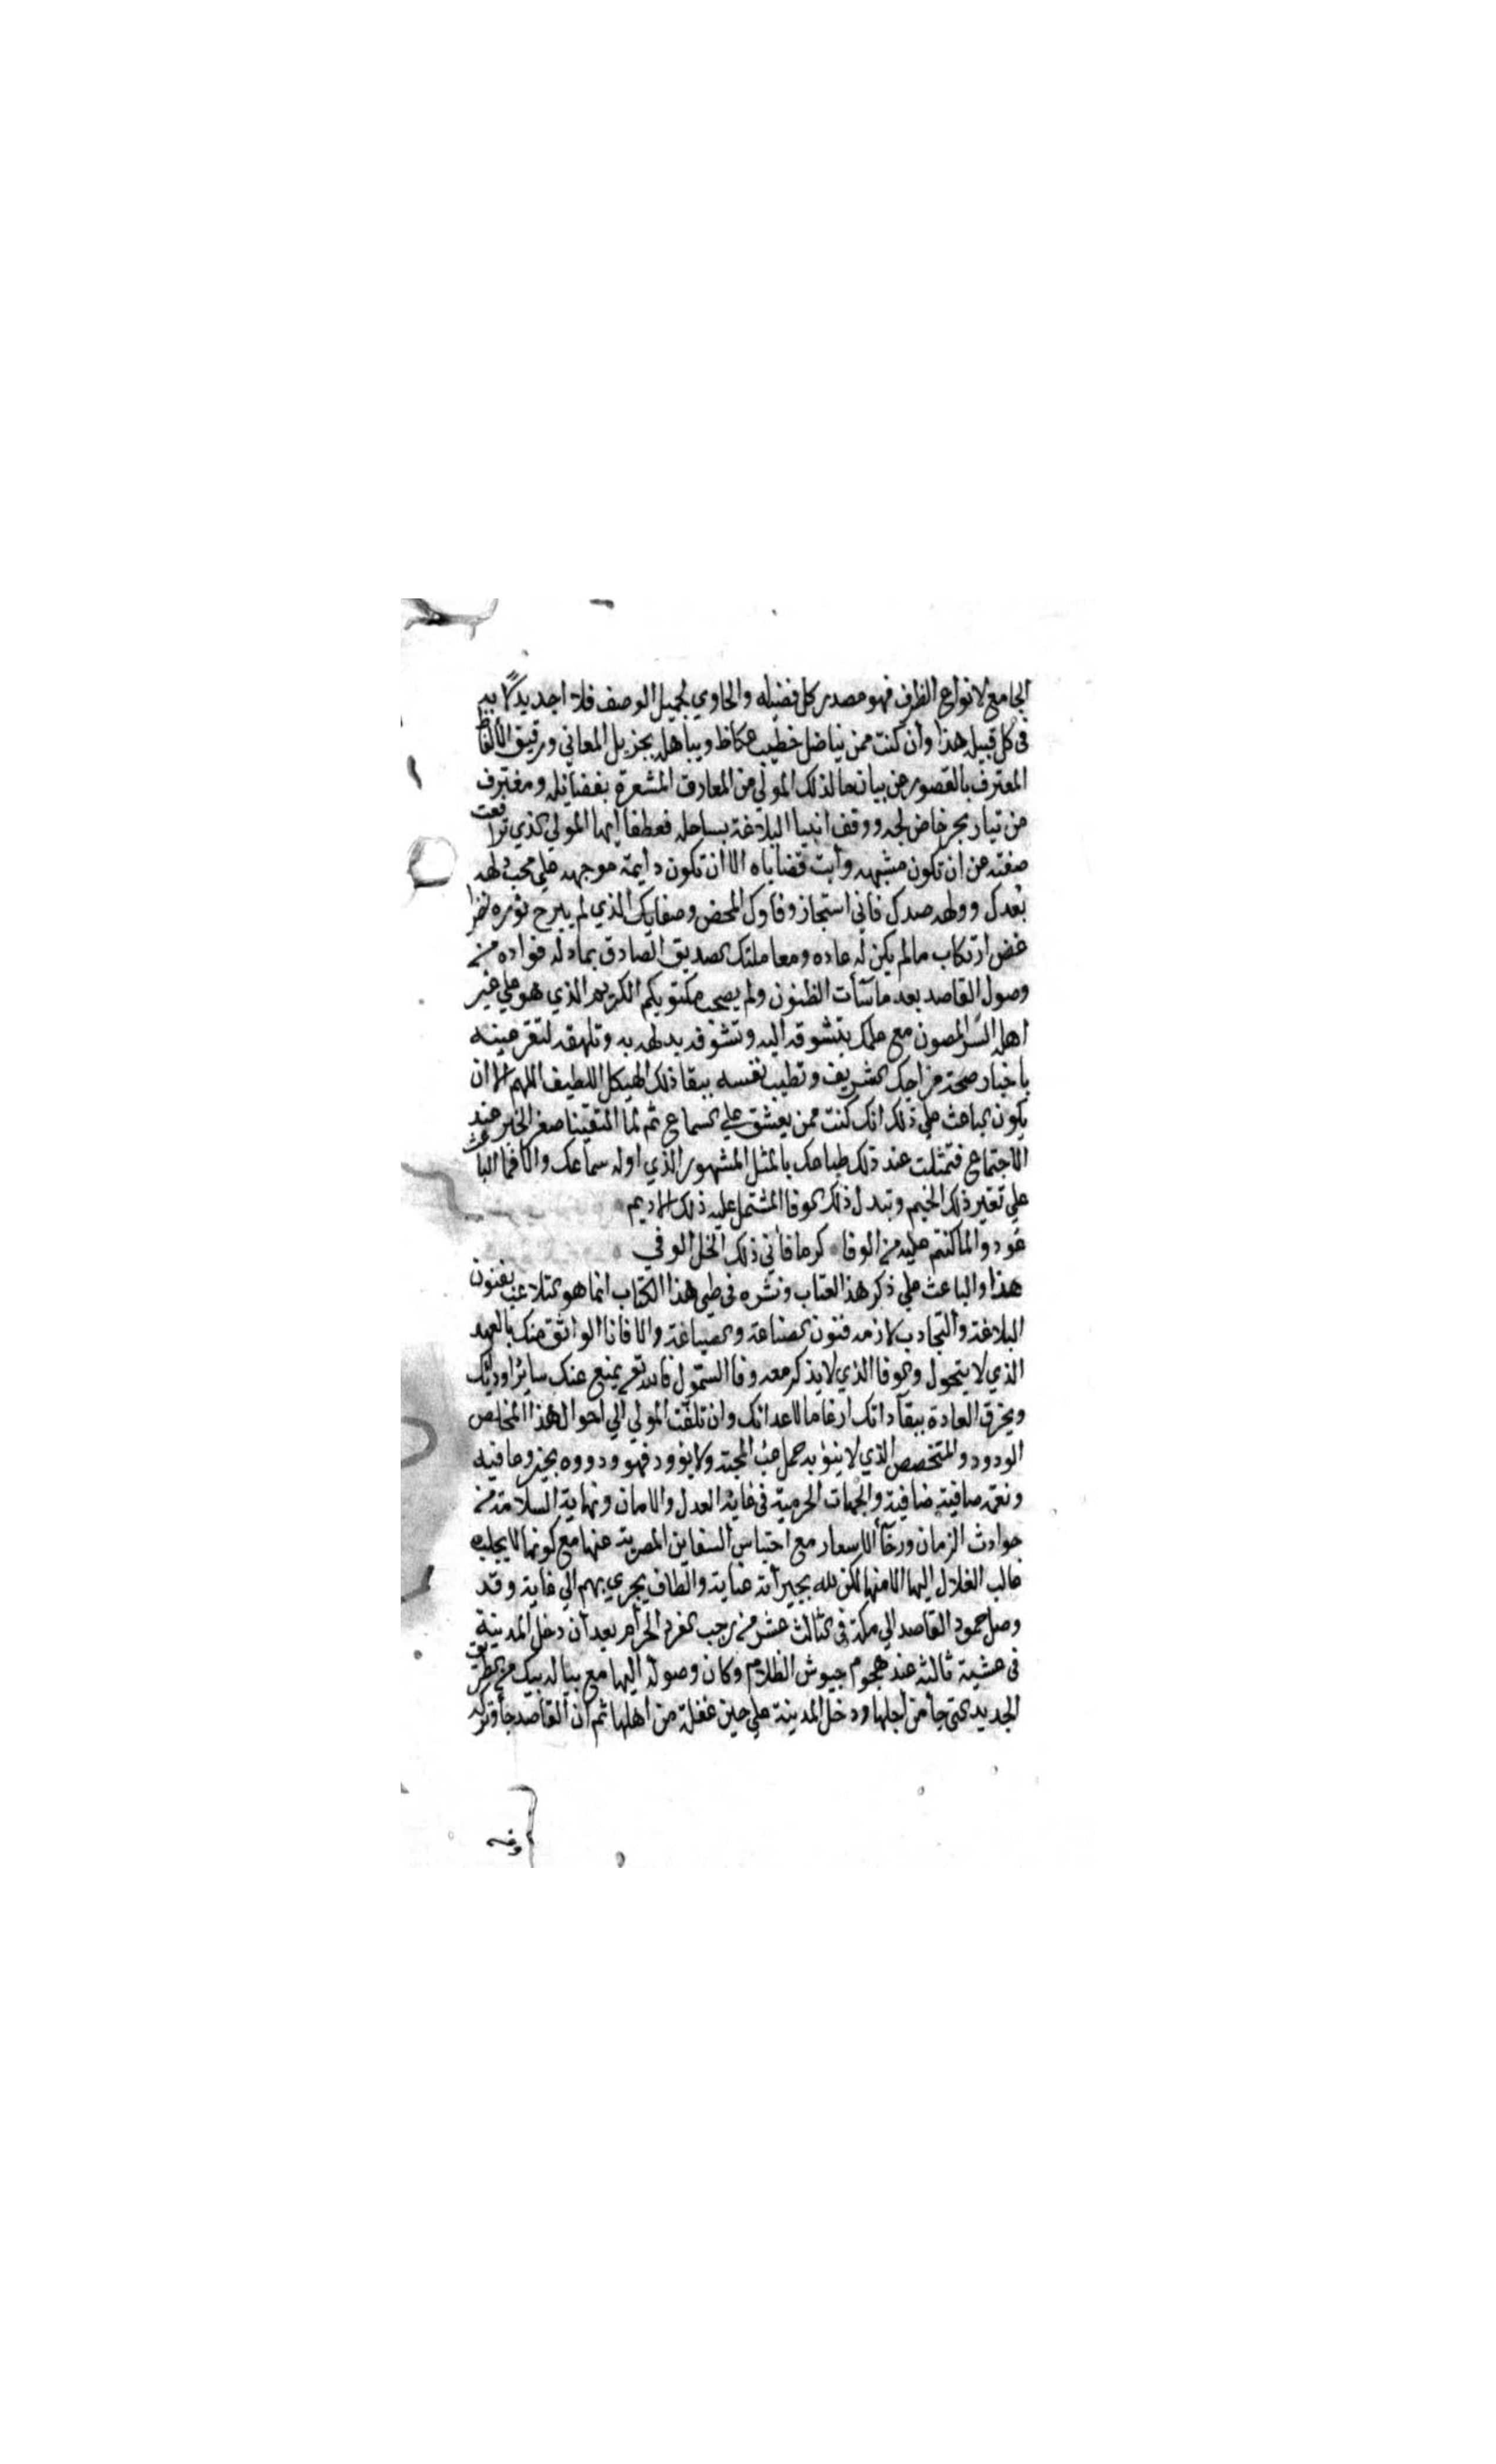 الجامع لانواع الظرف فهو مصدر كل فضيله والحاوي لجميل الوصف فلا اجد بديلا به
في كل قبيل هذا وان كنت ممن يناضل خطيب عكاظ ويباهله بجزيل المعاني ورقيق الألفاظ
المعترف بالقصور عن بيان مالذلك المولي من المعارف المشعرة بفضايله ومغترف
من تيار بحر خاض لجه ووقف انبيا البلاغة بساحله فعطفا ايها المولي الذي ترافعت
صفته من ان تكون مشبهه وأبت قضاياه الا ان تكون دايمة موجهه علي محب دلهه
بعدك وولهه صدك فاني استجاز وفاوك المحض وصفايك الذي لم يبرح نوره
غض ارتكاب مالم يكن له عاده ومعاملتك الصديق الصادق بما فواده من
وصول القاصد بعد ما سآت الظنون ولم يصحب مكتوبكم الكريم الذي هو علي غير
اهله السر المصون مع علمك بتشوقه اليه وتشوفه به وتلهفه لتقر عينه
باخبار صحة مزاجك الشريف وتطيب نفسه ببقا ذلك الهيكل اللطيف اللهم الا ان
يكون الباعث علي ذلك انك كنت ممن يعشق علي السماع ثم لما التقينا صغر الخبر عند
الاجتماع فتمثلت عند ذلك طباعك بالمثل المشهور الذي اوله سماعك والا فما الباعث
علي تغير ذلك الخيم وتبدل ذلك الوفا المشتمل عليه ذلك الاديم
عودوا لما كنتم عليه من الوفا كرما فاني ذلك الخل الوفي
هذا والباعث علي ذكر هذا العتاب ونشره في طي هذا الكتاب انما هو التلاعب بفنون
البلاغة والتجاذب لازمه فنون الصناعة والصياغة والا فانا الواثق منك بالعهد
الذي لا يتحول والوفا الذي لا يذكر معه وفا السمول فالله تعالي يمنع عنك ساير
ويخرق العادة ببقآ ذاتك ارغاما لاعدائك وان تلفت المولي الي احوال هذا المخلص
الودود والمتخصص الذي لا ينؤ به حمل عبْ المحبة ولا يؤود فهو وذووه بخير وعافيه
ونعمة صافية ضافية والجهات الحرمية في غاية العدل والامان ونهاية السلامة من
حوادث الزمان ورخآ الاسعار مع احتباس السفاين المصرية عنها مع كونها لا يجلبه
جالب الغلال اليها الا منها لكن لله بجيرانه عناية والطاف يجري بهم الي غاية وقد
وصل حمود القاصد الي مكة في الثالث عشر من رجب الفرد الحرام بعد أن دخل المدينة
في عشية ثالثه عند هجوم جيوش الظلام وكان وصوله اليها مع بيالدبيك من الطريق
الجديد التي جا من اجلها ودخل المدينة علي حين غفلة من اهلها ثم ان القاصد جا وتركه